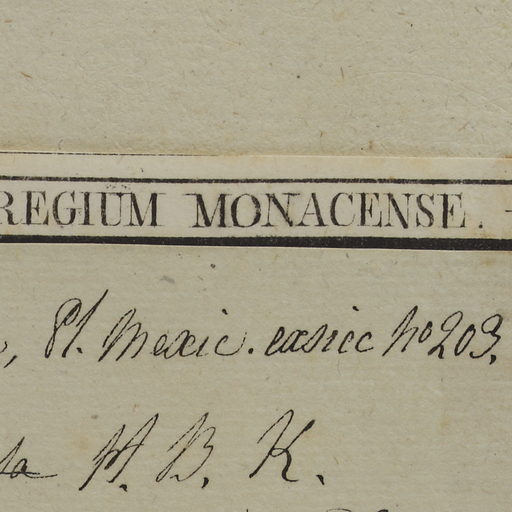 REGIUM MONACENSE.
, Pl. Mexic. exsicc No 203.
H. B. K.